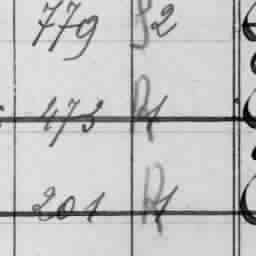 779 S2
473 R1
201 R1